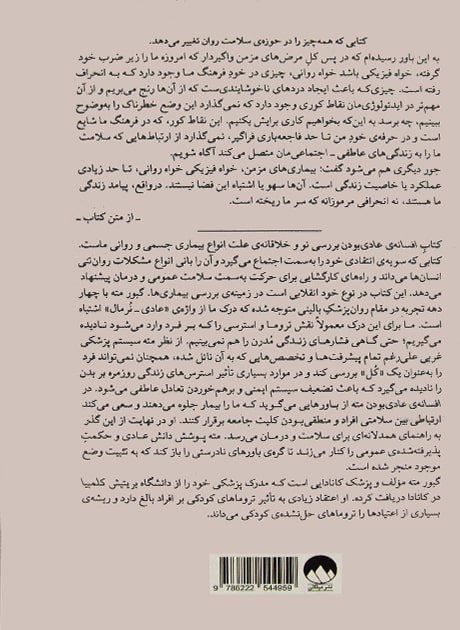 کتابی که همه‌چیز را در حوزه‌ی سلامت روان تغییر می‌دهد.
به این باور رسیده‌ام که در پس کل مرض‌های مزمن واگیرداری که امروزه ما را زیر ضرب خود
گرفته، خواه فیزیکی باشد خواه روانی، چیزی در خودِ فرهنگ ما وجود دارد که به انحراف
رفته است. چیزی‌که باعث ایجاد دردهای ناخوشایندی‌ست که از آن‌ها رنج می‌بریم و از آن
مهم‌تر در ایدئولوژی‌مان نقاط کوری وجود دارد که نمی‌گذارد این وضع خطرناک را به‌وضوح
ببینیم، چه برسد به این‌که بخواهیم کاری برایش بکنیم. این نقاط کور، که در فرهنگ ما شایع
است و در حرفه‌ی خودِ من تا حد فاجعه‌باری فراگیر، نمی‌گذارد از ارتباط‌هایی که سلامت
ما را به زندگی‌های عاطفی ـ اجتماعی‌مان متصل می‌کند آگاه شویم.
جور دیگری هم می‌شود گفت: بیماری‌های مزمن، خواه فیزیکی خواه روانی، تا حد زیادی
عملکرد یا خاصیت زندگی است. آن‌ها سهو یا اشتباه این فضا نیستند. درواقع، پیامد زندگی
ما هستند، نه انحرافی مرموزانه که سر ما ریخته است.
ـ از متن کتاب ـ
کتابِ افسانه‌ی عادی‌بودن بررسی نو و خلاقانه‌ی علت انواع بیماری جسمی و روانی ماست.
کتابی که سویه‌ی انتقادی خود را به‌سمت اجتماع می‌گیرد و آن را بانی انواع مشکلات روان‌تنی
انسان‌ها می‌داند و راه‌های کارگشایی برای حرکت به‌سمت سلامت عمومی و درمان پیشنهاد
می‌دهد. این کتاب در نوع خود انقلابی است در زمینه‌ی بررسی بیماری‌ها. گبور مته با چهار
دهه تجربه در مقام روان‌پزشکِ بالینی متوجه شده که درک ما از واژه‌ی «عادی ـ نُرمال» اشتباه
است. ما برای این درک معمولاً نقش تروما و استرسی را که بر فرد وارد می‌شود نادیده
می‌گیریم؛ حتی گاهی فشارهای زندگی مُدرن را هم نمی‌بینیم. از نظر مته سیستم پزشکی
غربی علی‌رغم تمام پیشرفت‌ها و تخصص‌هایی که به آن نائل شده، همچنان نمی‌تواند فرد
را به‌عنوان یک «کُل» بررسی کند و در موارد بسیاری تأثیر استرس‌های زندگی روزمره بر بدن
را نادیده می‌گیرد که باعث تضعیف سیستم ایمنی و برهم‌خوردن تعادل عاطفی می‌شود. در
افسانه‌ی عادی‌بودن مته از باورهایی می‌گوید که ما را بیمار جلوه می‌دهند و سعی می‌کند
ارتباطی بین سلامتی افراد و منطقی‌بودن کلیت جامعه برقرار کنند. او در نهایت از این گذر
به راهنمای همدلانه‌ای برای سلامت و درمان می‌رسد. مته پوشش دانش عادی و حکمتِ
پذیرفته‌شده‌ی عمومی را کنار می‌زند تا گره‌ی باورهای نادرستی را باز کند که به تثبیت وضع
موجود منجر شده است.
گبور مته مؤلف و پزشک کانادایی است که مدرک پزشکی خود را از دانشگاه بریتیش کلمبیا
در کانادا دریافت کرده. او اعتقاد زیادی به تأثیر تروماهای کودکی بر افراد بالغ دارد و ریشه‌ی
بسیاری از اعتیادها را تروماهای حل‌نشده‌ی کودکی می‌داند.
نشر میلکان
9 786222 544959